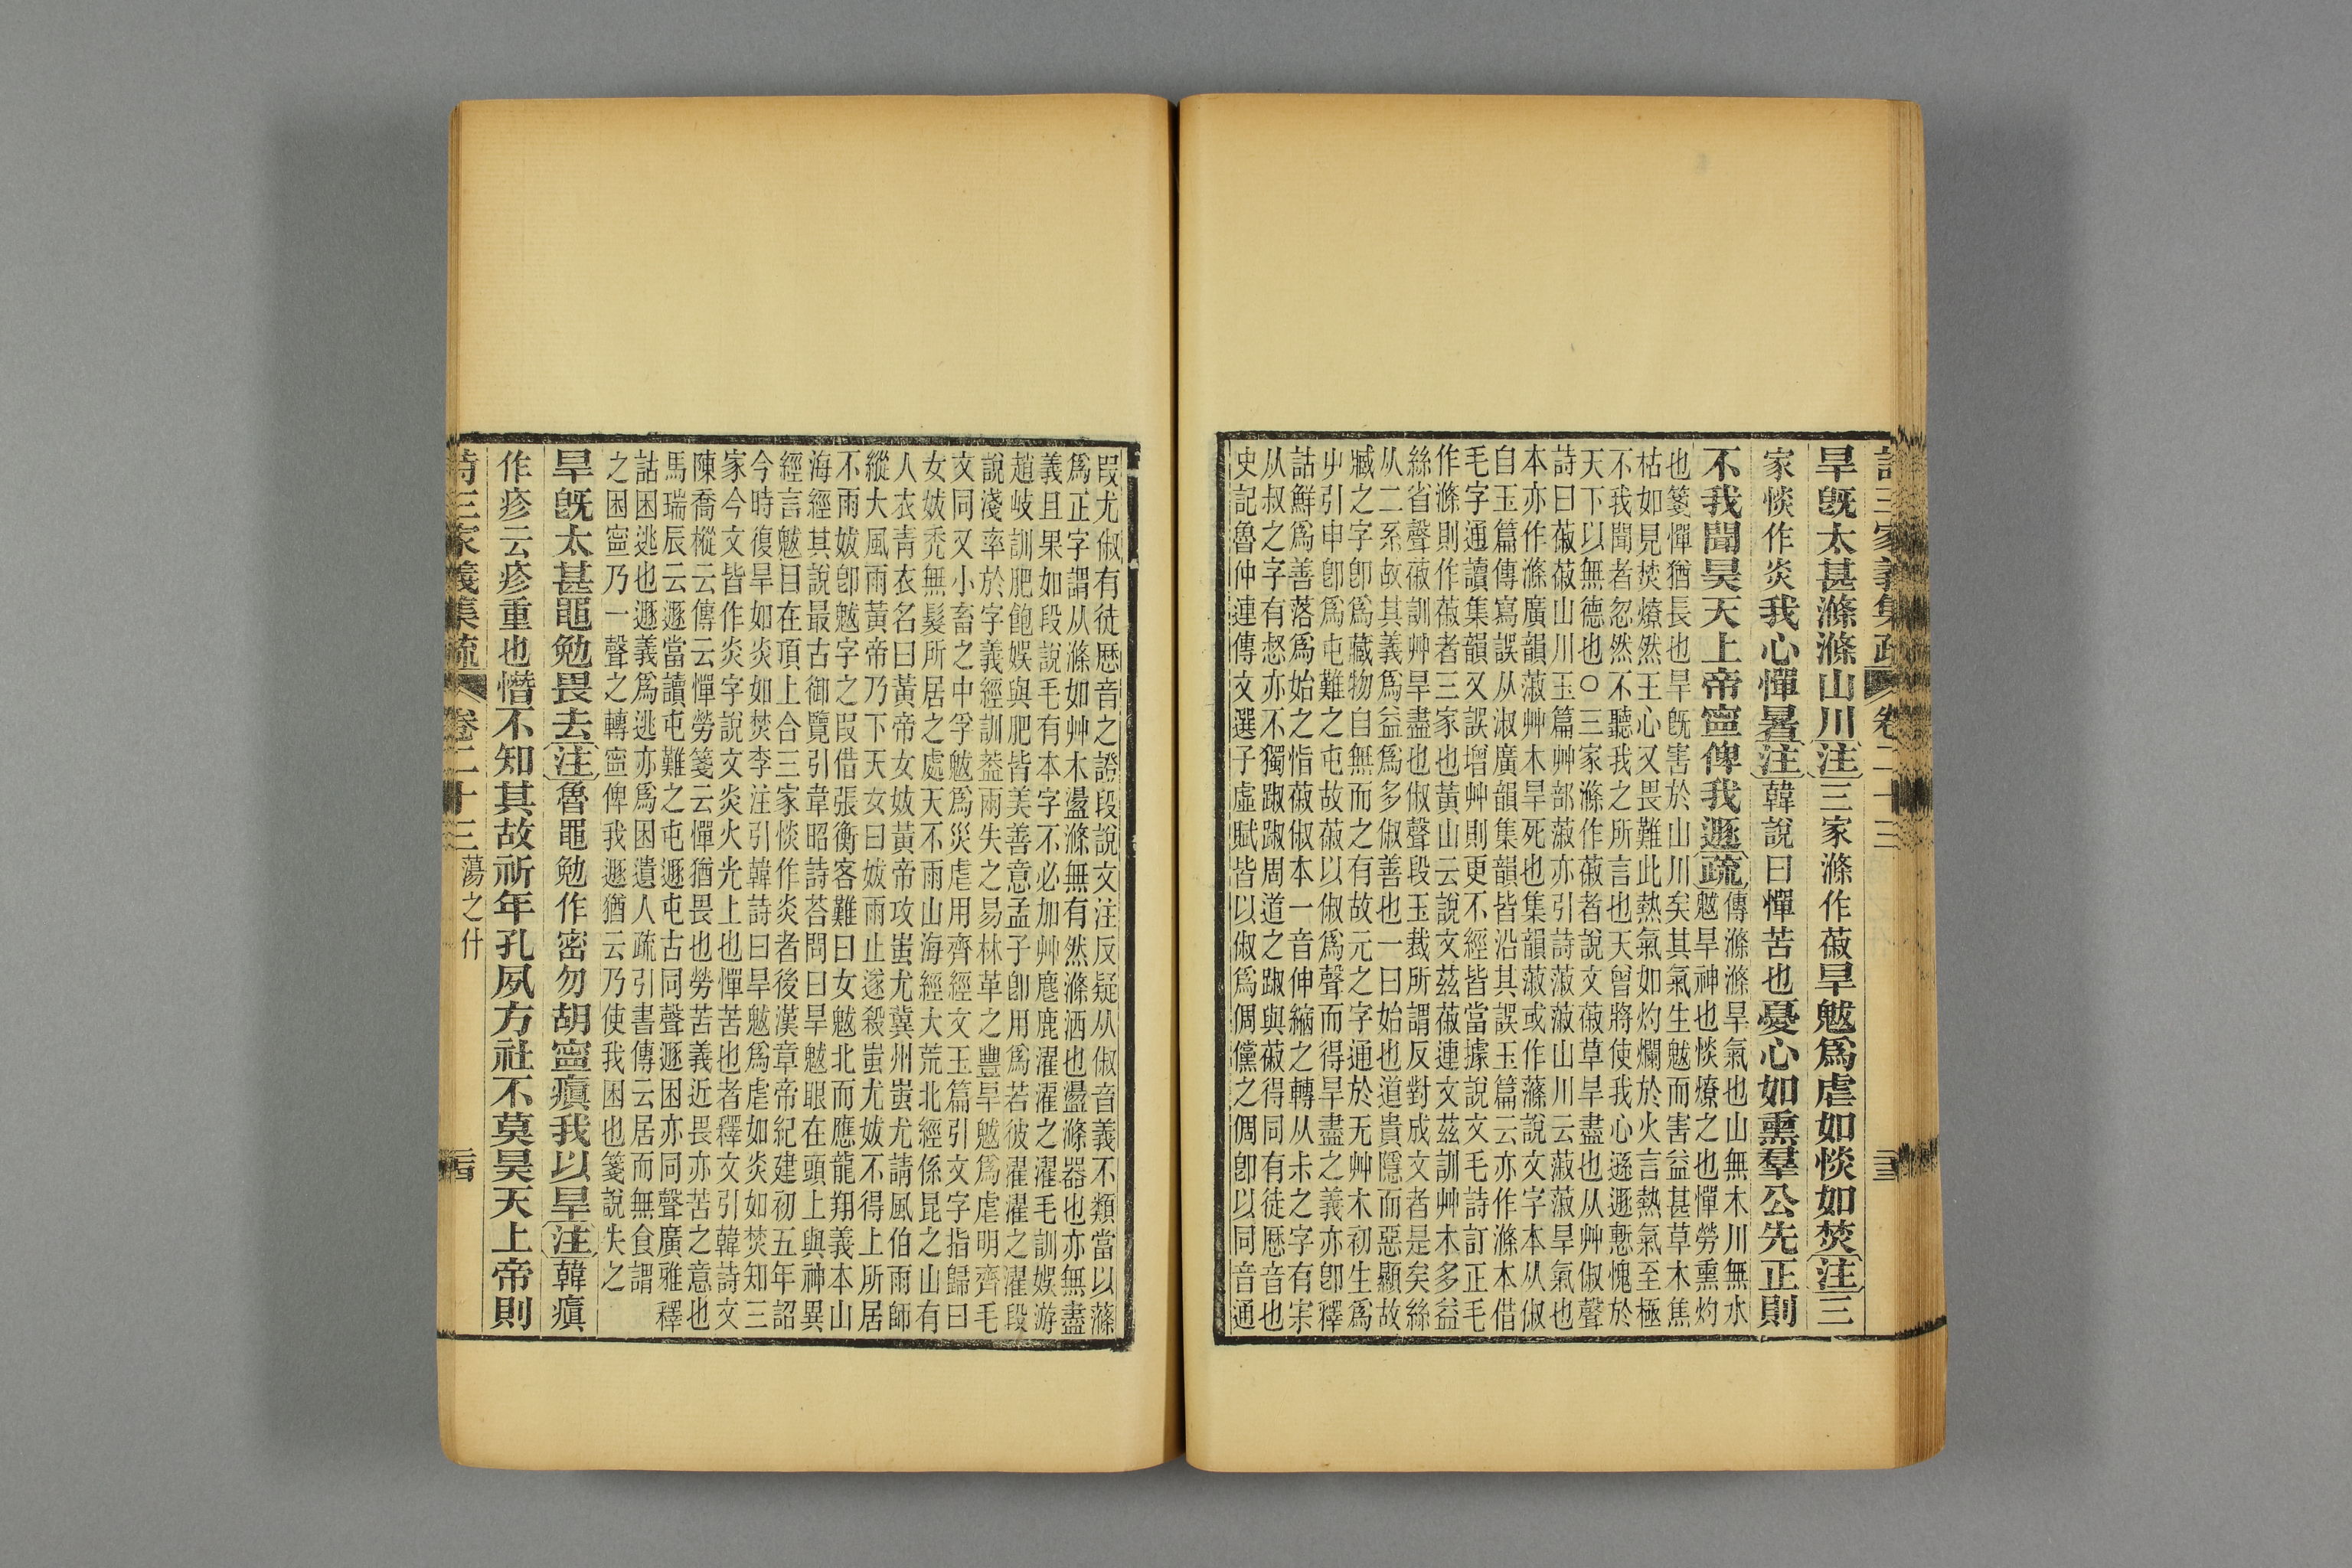 詩三家義集疏 卷二十三
旱旣太甚滌滌山川注三家滌作蔋旱魃爲虐如惔如焚注三
家惔作炎我心憚暑注韓說曰憚苦也憂心如熏羣公先正則
不我聞昊天上帝寍俾我遯疏
傳滌滌旱氣也山無木川無水
魃旱神也惔燎之也憚勞熏灼
也箋憚猶長也旱旣害於山川矣其氣生魃而害益甚草木焦
枯如見焚燎然王心又畏難此熱氣如灼爛於火言熱氣至極
不我聞者忽然不聽我之所言也天曾將使我心遜遯慙愧於
天下以無德也○三家滌作蔋者說文蔋草旱盡也从艸俶聲
詩曰蔋蔋山川玉篇艸部蔋亦引詩蔋蔋山川云蔋蔋旱氣也
本亦作滌廣韻蔋艸木旱死也集韻蔋或作藡說文字本从俶
自玉篇傳寫誤从淑廣韻集韻皆沿其誤玉篇云亦作滌本借
毛字通讀集韻又誤增艸則更不經皆當據說文毛詩訂正毛
作滌則作蔋者三家也黃山云說文茲蔋連文茲訓艸木多益
絲省聲蔋訓艸旱盡也俶聲段玉裁所謂反對成文者是矣絲
从二糸故其義爲益爲多俶善也一曰始也道貴隱而惡顯故
臧之字卽爲藏物自無而之有故元之字通於无艸木初生爲
屮引申卽爲屯難之屯故蔋以俶爲聲而得旱盡之義亦卽釋
詁鮮爲善落爲始之恉蔋俶本一音伸縮之轉从尗之字有宋
从叔之字有惄亦不獨踧踧周道之踧與蔋得同有徒厯音也
史記魯仲連傳文選子虛賦皆以俶爲倜儻之倜卽以同音通
叚尤俶有徒厯音之證段說文注反疑从俶音義不類當以藡
爲正字謂从滌如艸木盪滌無有然滌洒也盪滌器也亦無盡
義且果如段說毛有本字不必加艸麀鹿濯濯之濯毛訓娛游
趙岐訓肥飽娛與肥皆美善意孟子卽用爲若彼濯濯之濯段
說淺率於字義經訓葢兩失之易林革之豐旱魃爲虐明齊毛
文同又小畜之中孚魃爲災虐用齊經文玉篇引文字指歸曰
女妭禿無髮所居之處天不雨山海經大荒北經係昆之山有
人衣青衣名曰黃帝女妭黃帝攻蚩尤冀州蚩尤請風伯雨師
縱大風雨黃帝乃下天女曰妭雨止遂殺蚩尤妭不得上所居
不雨妭卽魃字之叚借張衡客難曰女魃北而應龍翔義本山
海經其說最古御覽引韋昭詩荅問曰旱魃眼在頭上與神異
經言魃目在頂上合三家惔作炎者後漢章帝紀建初五年詔
今時復旱如炎如焚李注引韓詩曰旱魃爲虐如炎如焚知三
家今文皆作炎字說文炎火光上也憚苦也者釋文引韓詩文
陳喬樅云傳云憚勞箋云憚猶畏也勞苦義近畏亦苦之意也
馬瑞辰云遯當讀屯難之屯遯屯古同聲遯困亦同聲廣雅釋
詁困逃也遯義爲逃亦爲困遺人疏引書傳云居而無食謂
之困寍乃一聲之轉寍俾我遯猶云乃使我困也箋說失之
旱旣太甚黽勉畏去注魯黽勉作密勿胡寍瘨我以旱注韓瘨
作疹云疹重也憯不知其故祈年孔夙方社不莫昊天上帝則
詩三家義集疏 卷二十三 蕩之什 三十四